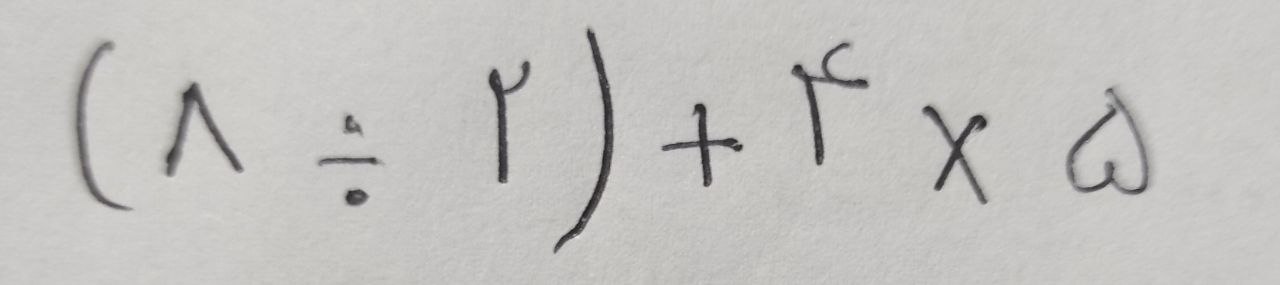 (۸ ÷ ۲) + ۴ × ۵